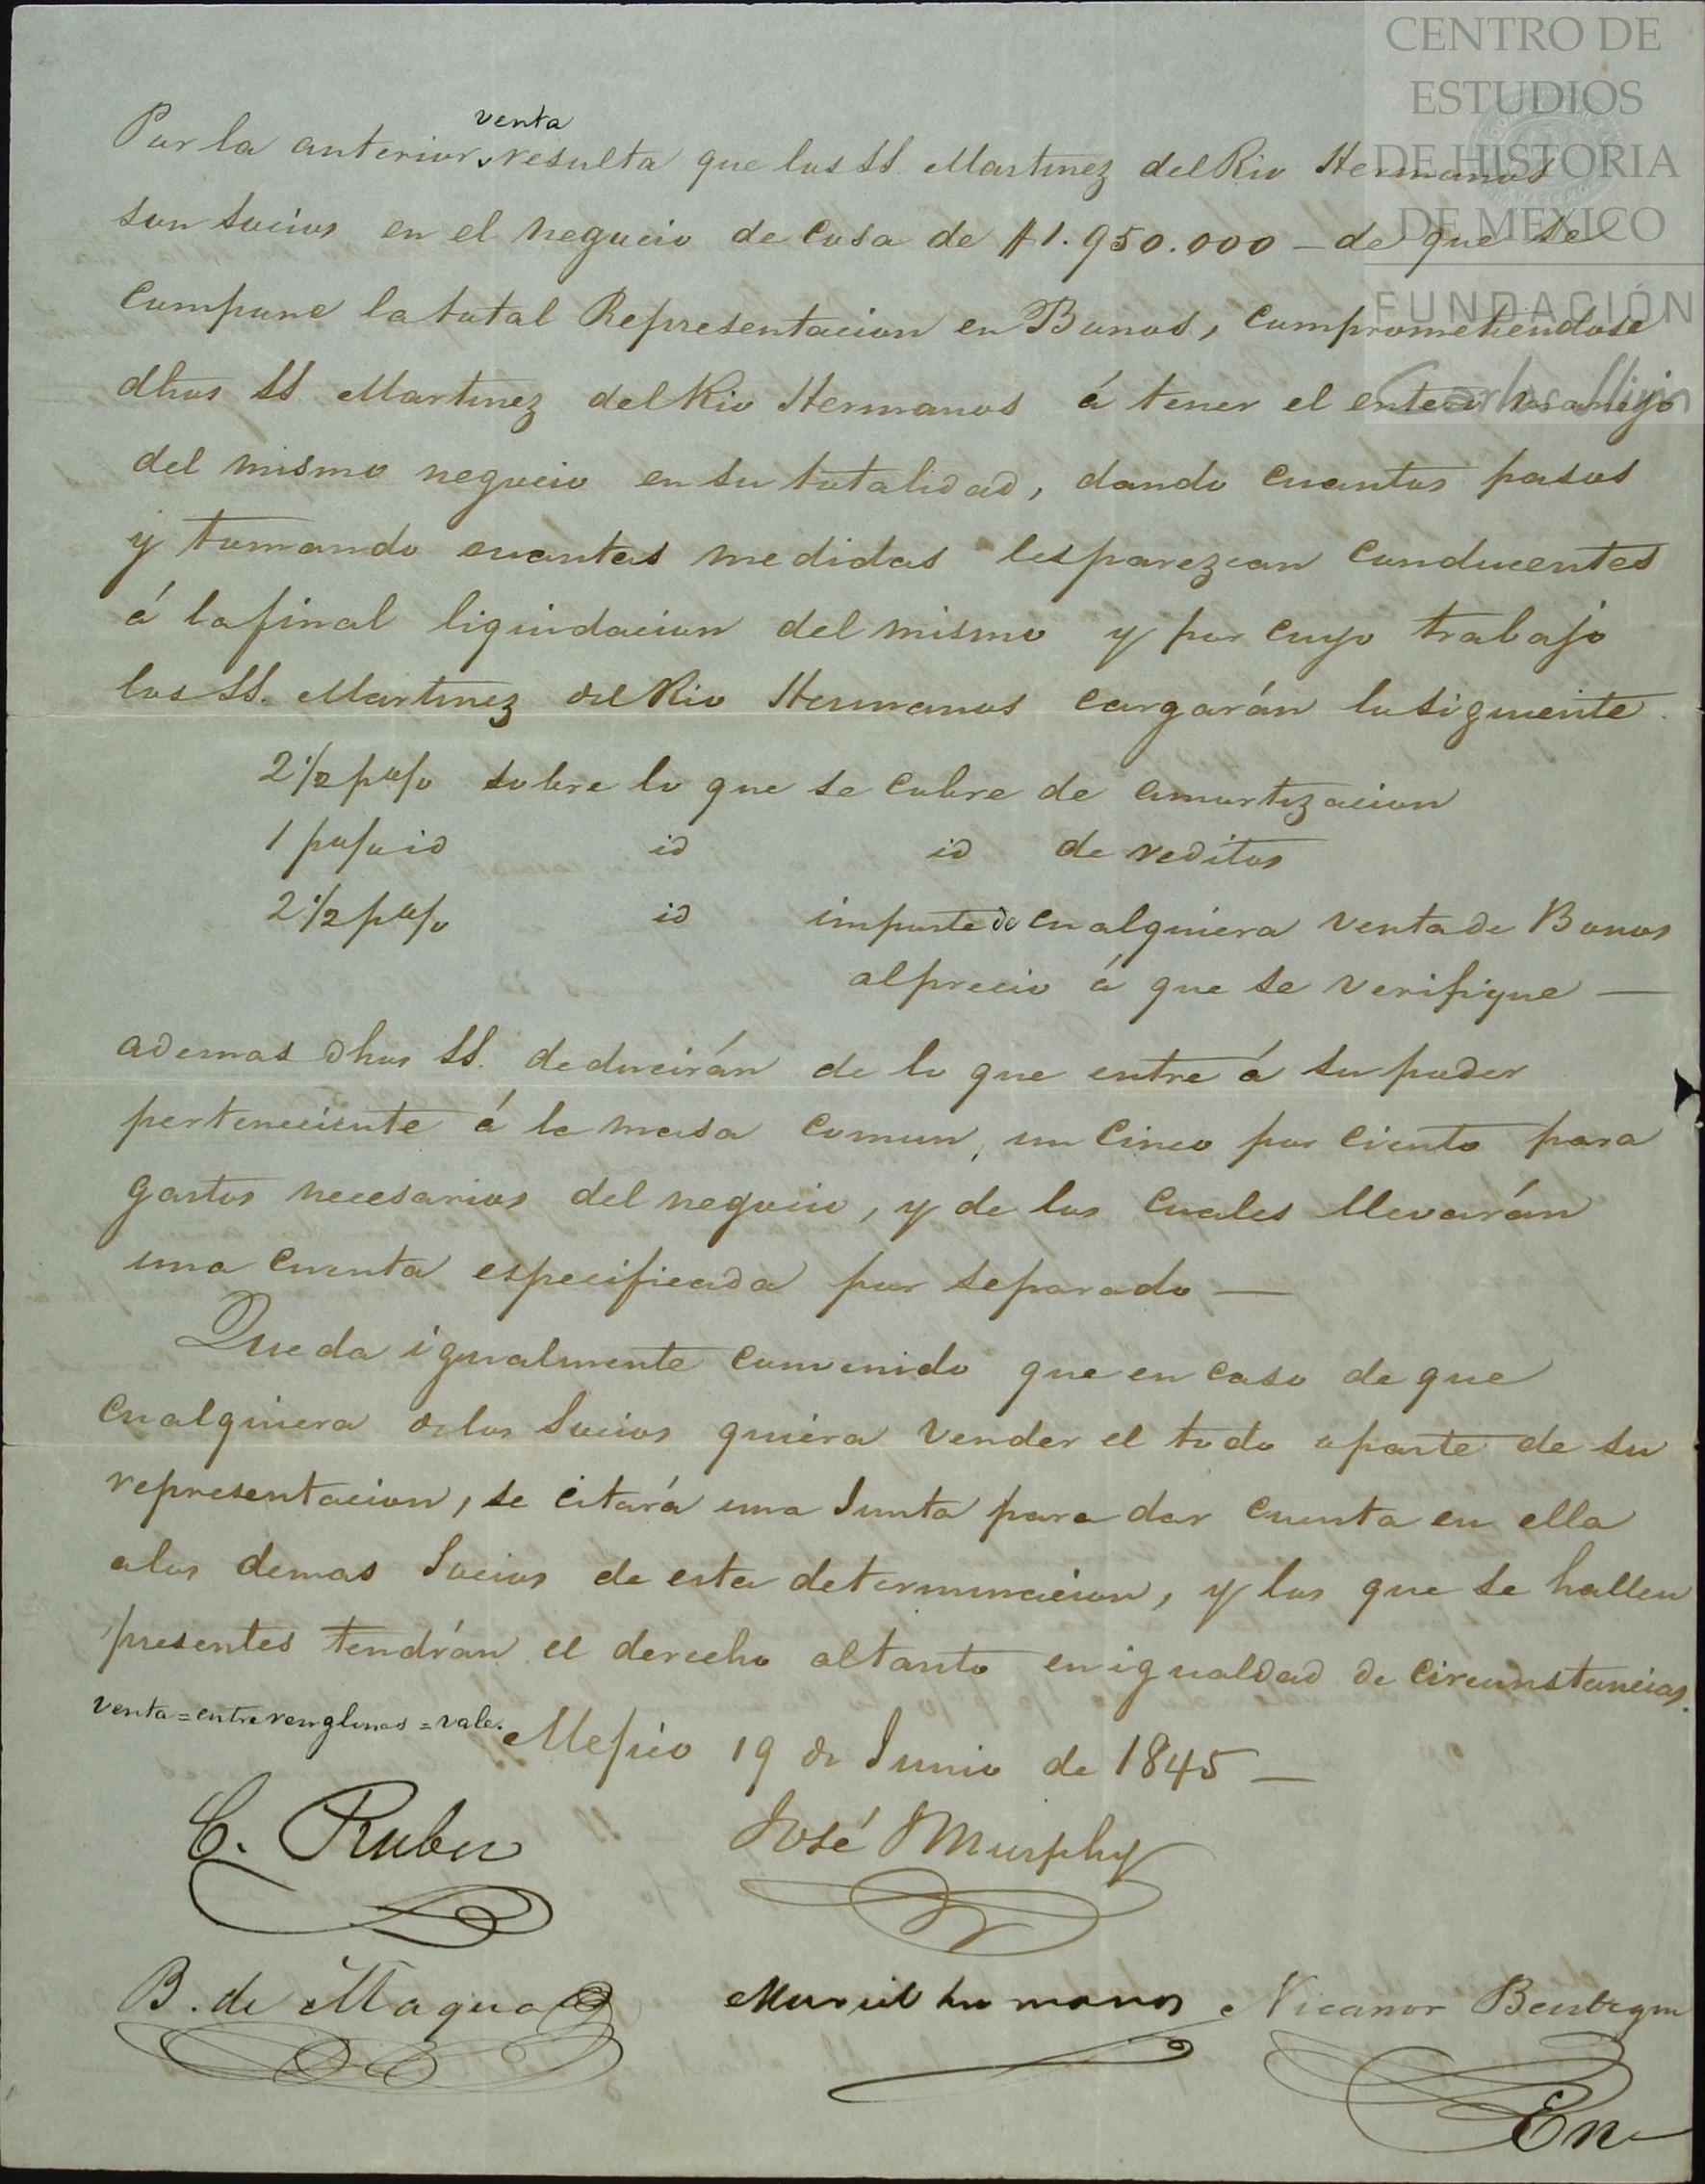 CENTRO DE
ESTUDIOS
DE HISTORIA
DE MEXICO
FUNDACIÓN
Carlos Slim
venta
Por la anterior resulta que los SS. Martinez del Rio Hermanos
son socios en el negocio de cosa de $1.950.000 — de que se
compone la total Representacion en Bonos, comprometiendose
dhos SS. Martinez del Rio Hermanos á tener el entero manejo
del mismo negocio en su totalidad, dando cuantos pasos
y tomando cuantas medidas les parezcan conducentes
á la final liquidacion del mismo y por cuyo trabajo
los SS. Martinez del Rio Hermanos cargarán lo siguiente.
2 1/2 p% sobre lo que se cobre de amortizacion
1 p% id id id de reditos
2 1/2 p% id importe de cualquiera venta de Bonos
al precio á que se verifique —
ademas dhos SS. deducirán de lo que entre á su poder
perteneciente á la masa comun, un cinco por ciento para
gastos necesarios del negocio, y de los cuales llevarán
una cuenta especificada por separado —
Queda igualmente convenido que en caso de que
cualquiera de los Socios quiera vender el todo o parte de su
representacion, se citará una Junta para dar cuenta en ella
a los demas Socios de esta determinacion, y los que se hallen
presentes tendrán el derecho al tanto en igualdad de circunstancias.
venta = entre renglones = vale.
Mejico 19 de Junio de 1845 —
C. Ruber
José M Murphy
B. de Maqua
Muriel hermanos
Nicanor Beistegui
En